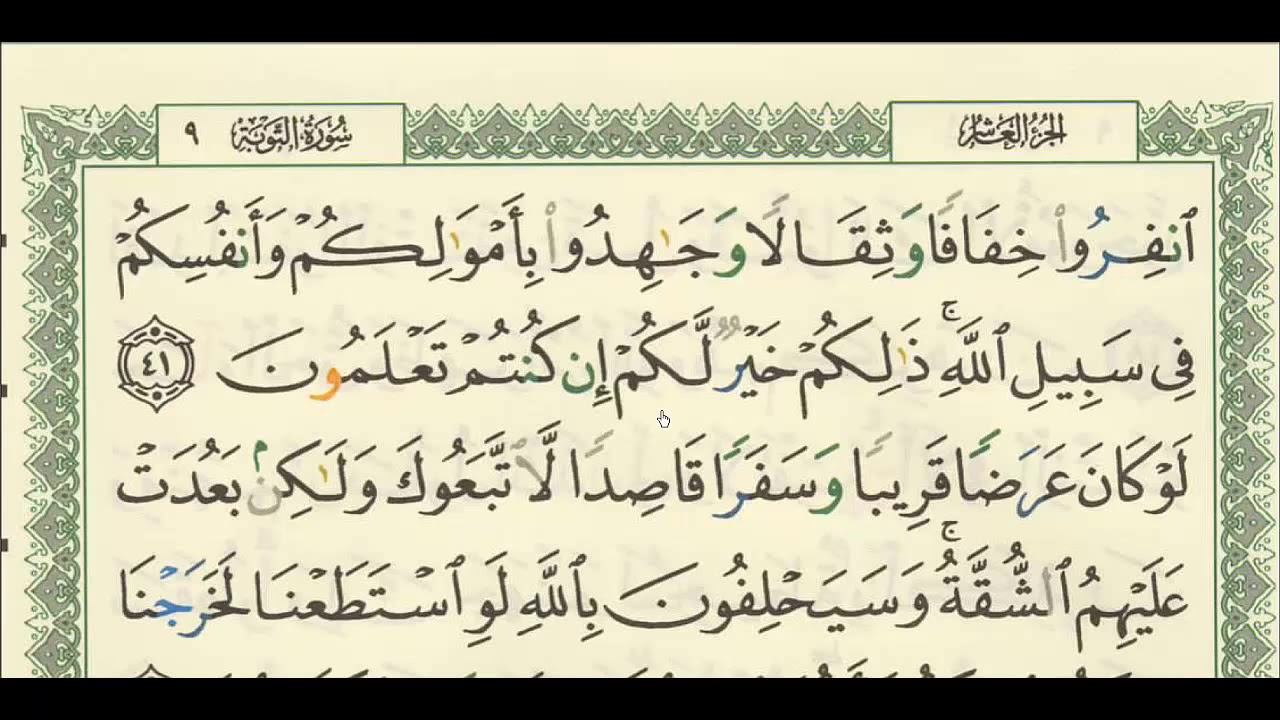 الجزء العاشر
سورة التوبة ٩
ٱنفِرُوا۟ خِفَافًا وَثِقَالًا وَجَـٰهِدُوا۟ بِأَمْوَٰلِكُمْ وَأَنفُسِكُمْ
فِى سَبِيلِ ٱللَّهِ ۚ ذَٰلِكُمْ خَيْرٌ لَّكُمْ إِن كُنتُمْ تَعْلَمُونَ ٤١
لَوْ كَانَ عَرَضًا قَرِيبًا وَسَفَرًا قَاصِدًا لَّٱتَّبَعُوكَ وَلَـٰكِنۢ بَعُدَتْ
عَلَيْهِمُ ٱلشُّقَّةُ ۚ وَسَيَحْلِفُونَ بِٱللَّهِ لَوِ ٱسْتَطَعْنَا لَخَرَجْنَا